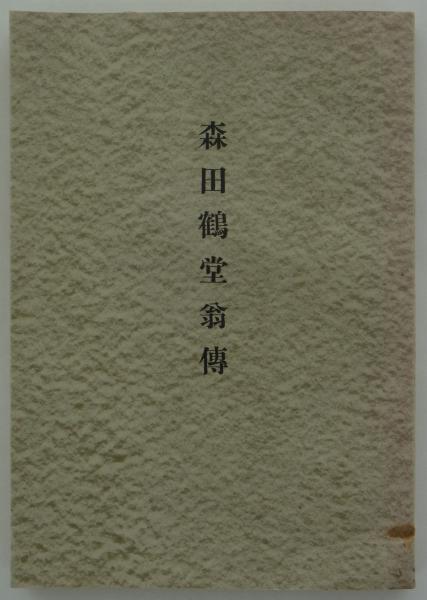 森田鶴堂翁傳